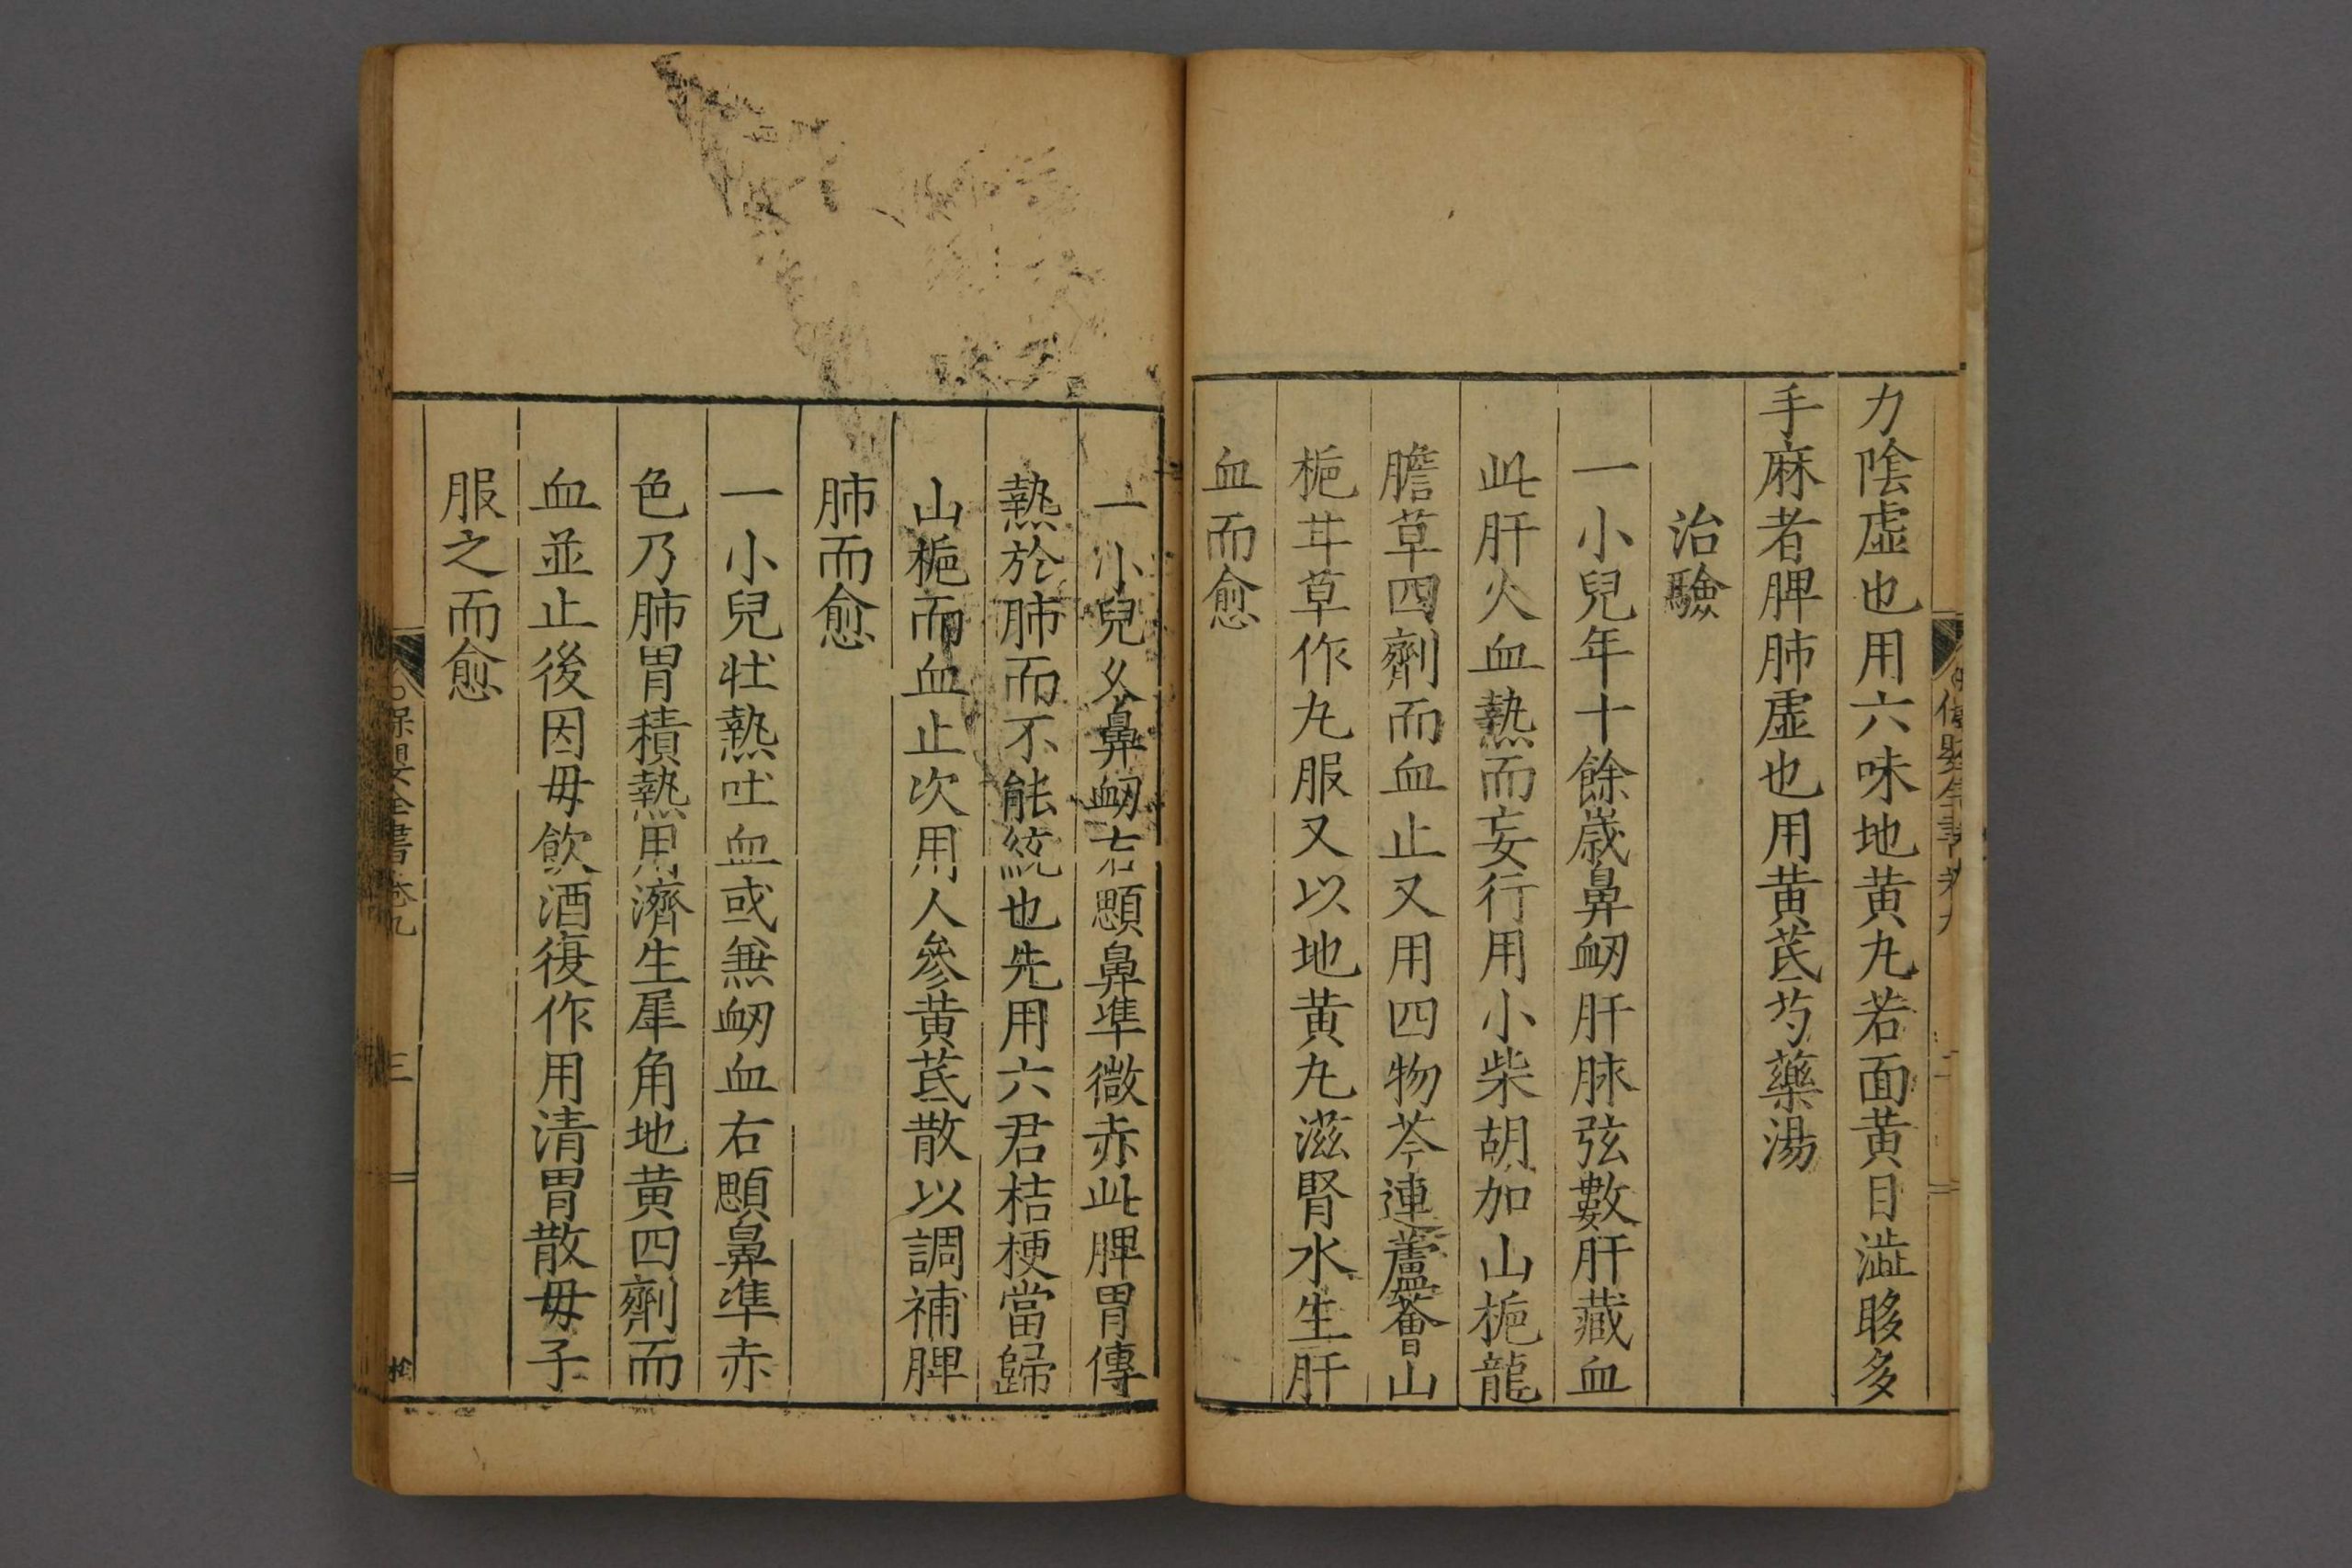 力陰虛也用六味地黄九若面黄目澁眵多
手麻者脾肺虛也用黄芪芍藥湯
治驗
一小兒年十餘歲鼻衂肝脉弦數肝藏血
此肝火血熱而妄行用小柴胡加山梔龍
膽草四劑而血止又用四物芩連蘆薈山
梔甘草作九服又以地黄九滋腎水生肝
血而愈
一小兒久鼻衂右顋鼻準微赤此脾胃傳
熱於肺而不能統也先用六君桔梗當歸
山梔而血止次用人參黄芪散以調補脾
肺而愈
一小兒壮熱吐血或無衂血右顋鼻準赤
色乃肺胃積熱用濟生犀角地黄四劑而
血並止後因毋飲酒復作用清胃散毋子
服之而愈
保嬰全書 卷九
三